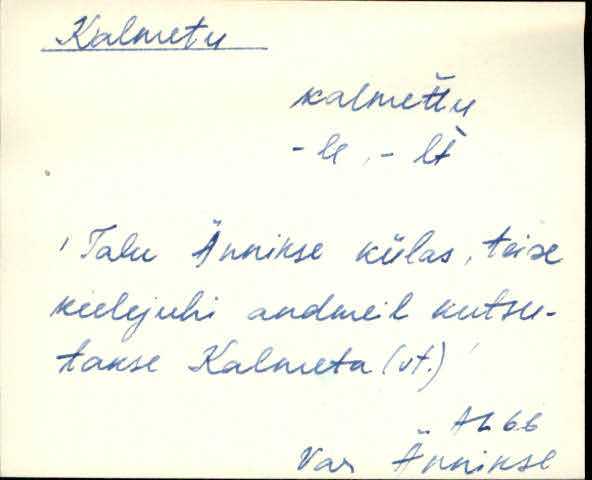 Kalmetu
kalmettu
-le, -lt
'Talu Ännikse külas, teise
keelejuhi andmeil kutsu-
takse Kalmeta (vt.)'
AL 66
Var Ännikse